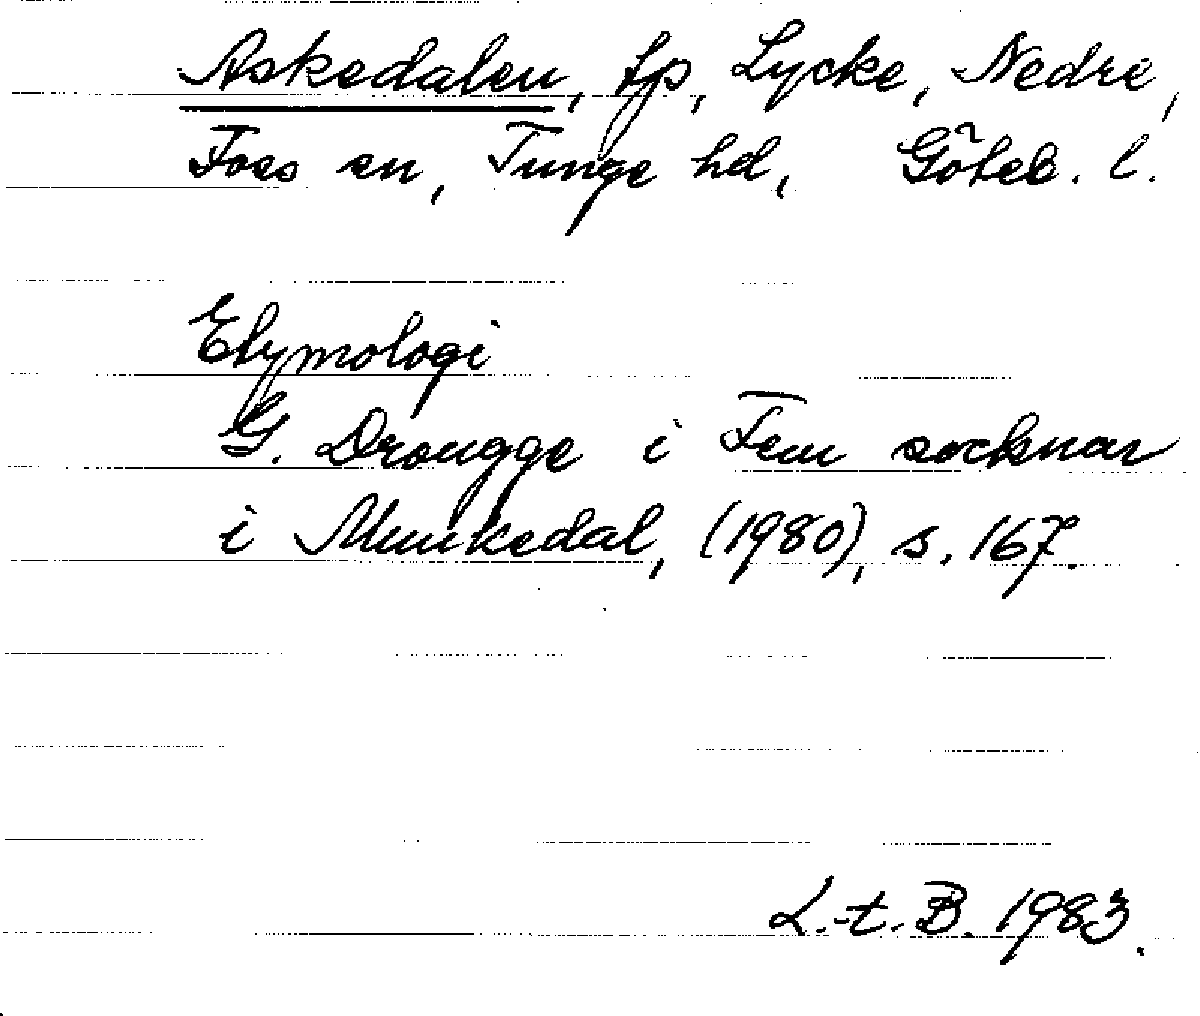 Askedalen, tp, Lycke, Nedre,
Foss sn, Tunge hd, Göteb. l.
Etymologi
G. Drougge i Fem socknar
i Munkedal, (1980), s. 167.
L.-t. B. 1983.